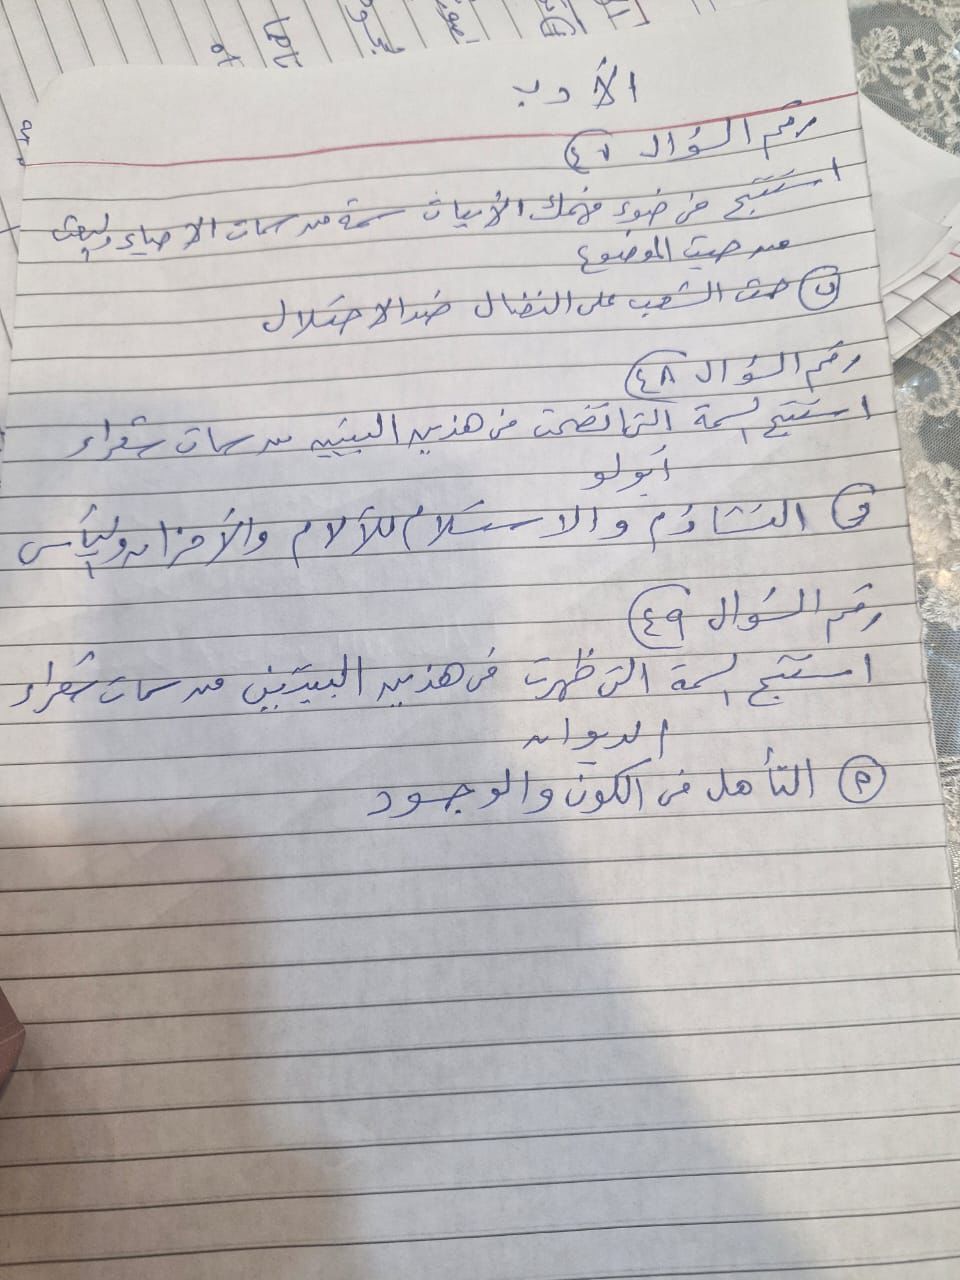 الأدب
رقم السؤال ٤٧
استنتج من ضوء فهمك الأبيات سمة من سمات الإحياء والبعث
من حيث الموضوع
ب حث الشعب على النضال ضد الاحتلال
رقم السؤال ٤٨
استنتج السمة التى اتضحت فى هذين البيتين من سمات شعراء
أبولو
التشاؤم والاستسلام للآلام والأحزان واليأس
رقم السؤال ٤٩
استنتج السمة التى ظهرت فى هذين البيتين من سمات شعراء
الديوان
التأمل فى الكون والوجود